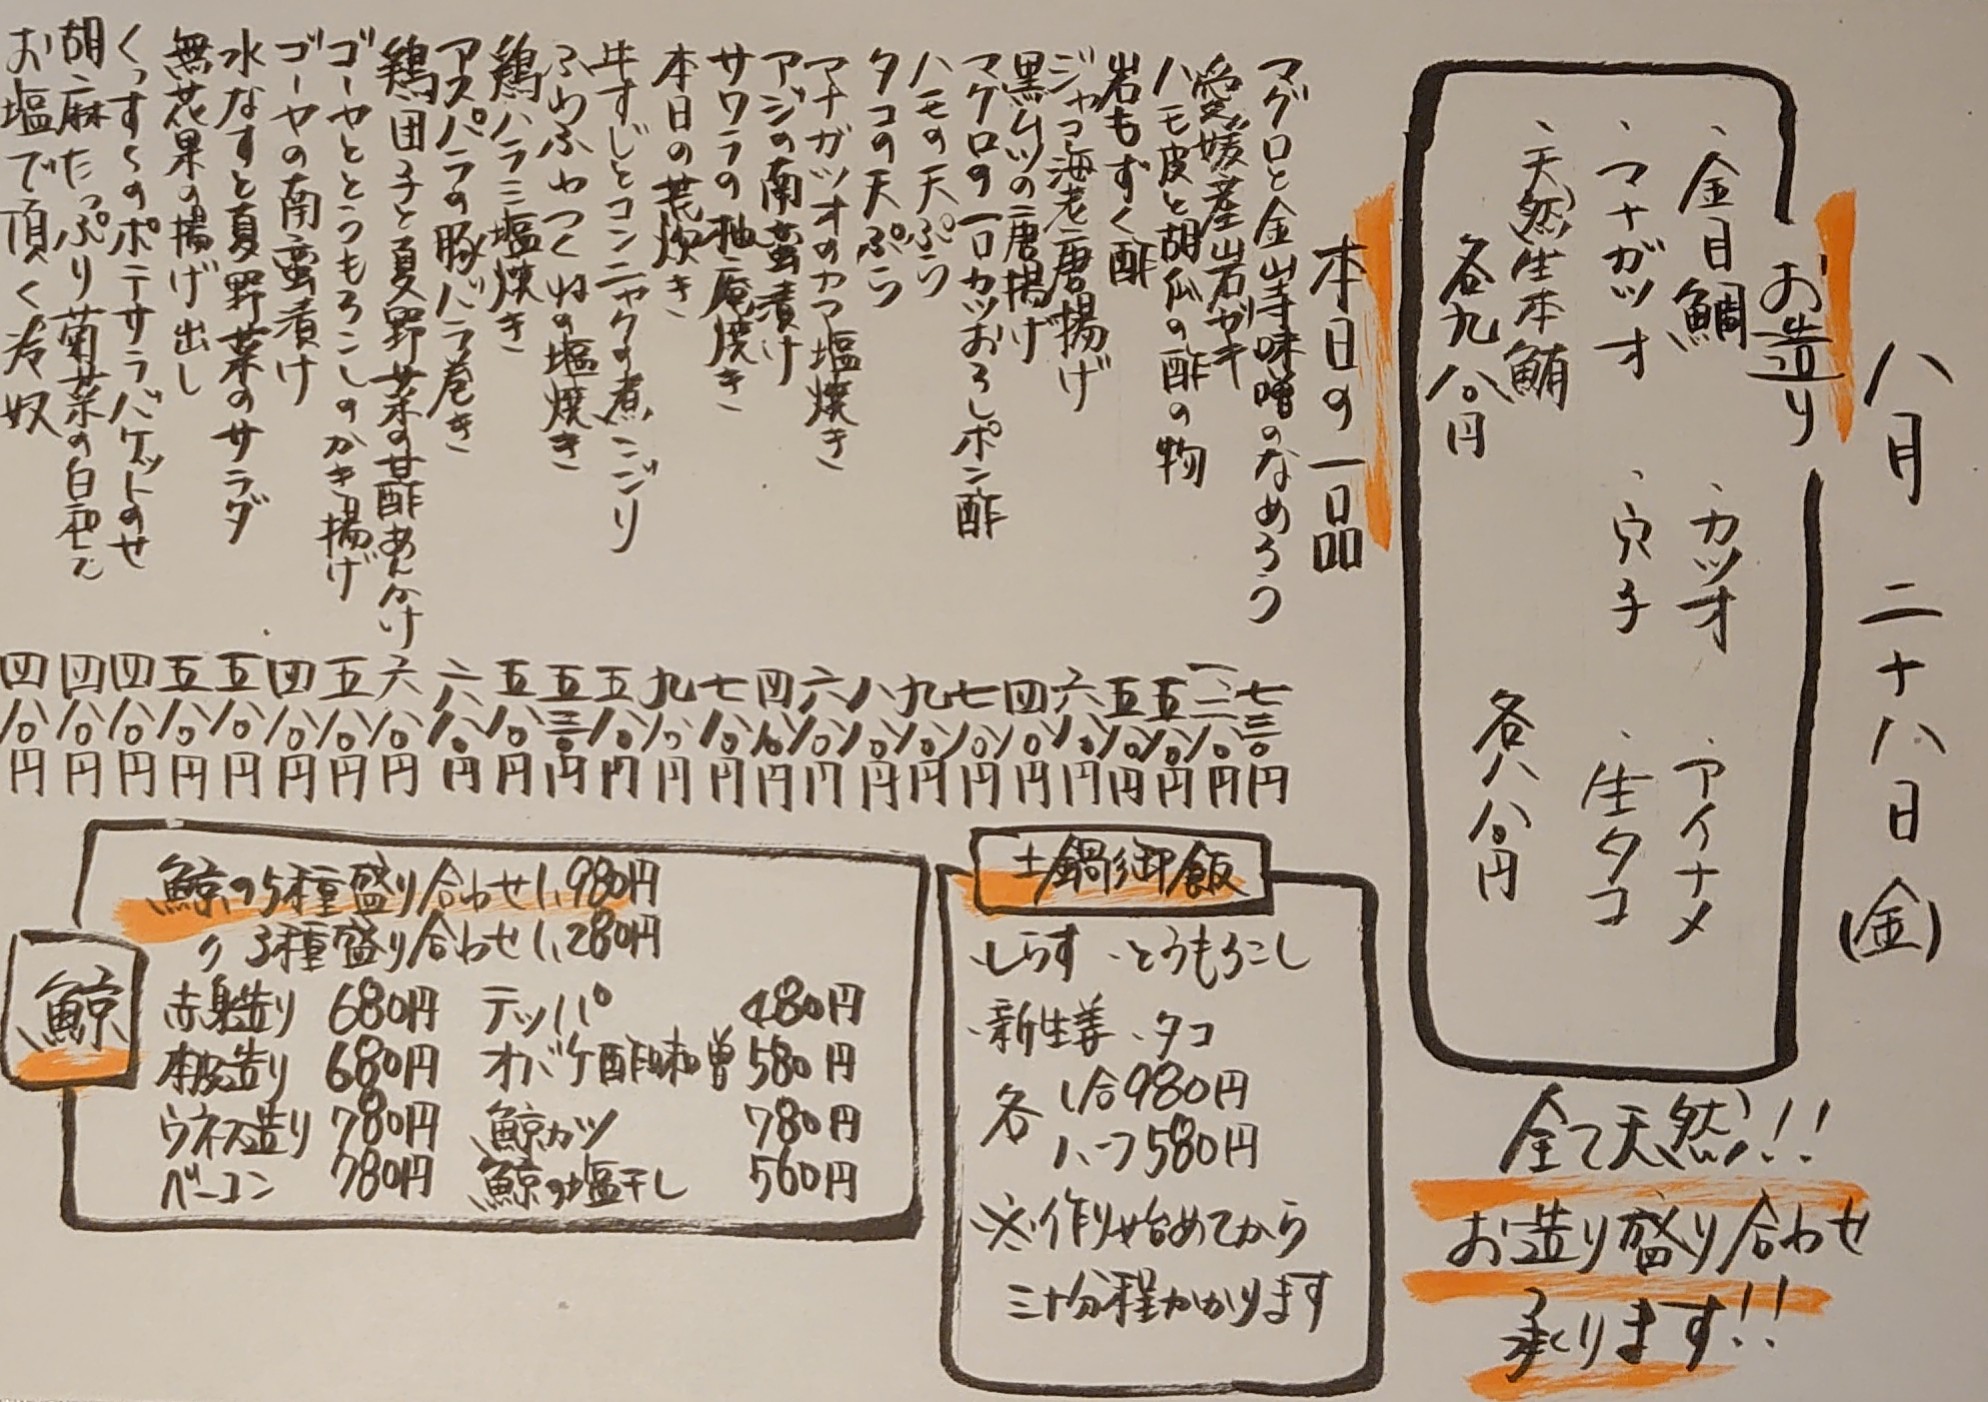 八月二十八日(金)
お造り
・金目鯛 ・カツオ ・アイナメ
・マナガツオ ・穴子 ・生タコ
・天然生本鮪 各八八〇円
各九八〇円
全て天然!!
お造り盛り合わせ
承ります!!
本日の一品
マグロと金山寺味噌のなめろう 七三〇円
愛媛産岩ガキ
ハモ皮と胡瓜の酢の物 五八〇円
岩もずく酢 五八〇円
ジャコ海老唐揚げ 六八〇円
黒ムツの唐揚げ 四八〇円
マグロの一口カツおろしポン酢 七八〇円
ハモの天ぷら 九八〇円
タコの天ぷら 八八〇円
マナガツオのカマ塩焼き 六八〇円
アジの南蛮漬け 四八〇円
サワラの柚庵焼き 七八〇円
本日の荒炊き 九八〇円
牛すじとコンニャクの煮こごり 五八〇円
ふわふわつくねの塩焼き 五三〇円
鶏ハラミ塩焼き 五八〇円
アスパラの豚バラ巻き 六八〇円
鶏団子と夏野菜の甘酢あんかけ 六八〇円
ゴーヤととうもろこしのかき揚げ 五八〇円
ゴーヤの南蛮漬け 四八〇円
水なすと夏野菜のサラダ 五八〇円
無花果の揚げ出し 五八〇円
くっすんのポテサラバケットのせ 四八〇円
胡麻たっぷり菊菜の白和え 四八〇円
お塩で頂く冷奴 四八〇円
土鍋御飯
・しらす ・とうもろこし
・新生姜 ・タコ
各 1合980円
ハーフ580円
※作り始めてから
三十分程かかります
鯨
鯨の5種盛り合わせ1,980円
〃 3種盛り合わせ1,280円
赤身造り 680円 テッパ 480円
本皮造り 680円 オバケ酢味噌 580円
ウネス造り 780円 鯨カツ 780円
ベーコン 780円 鯨の塩干し 560円